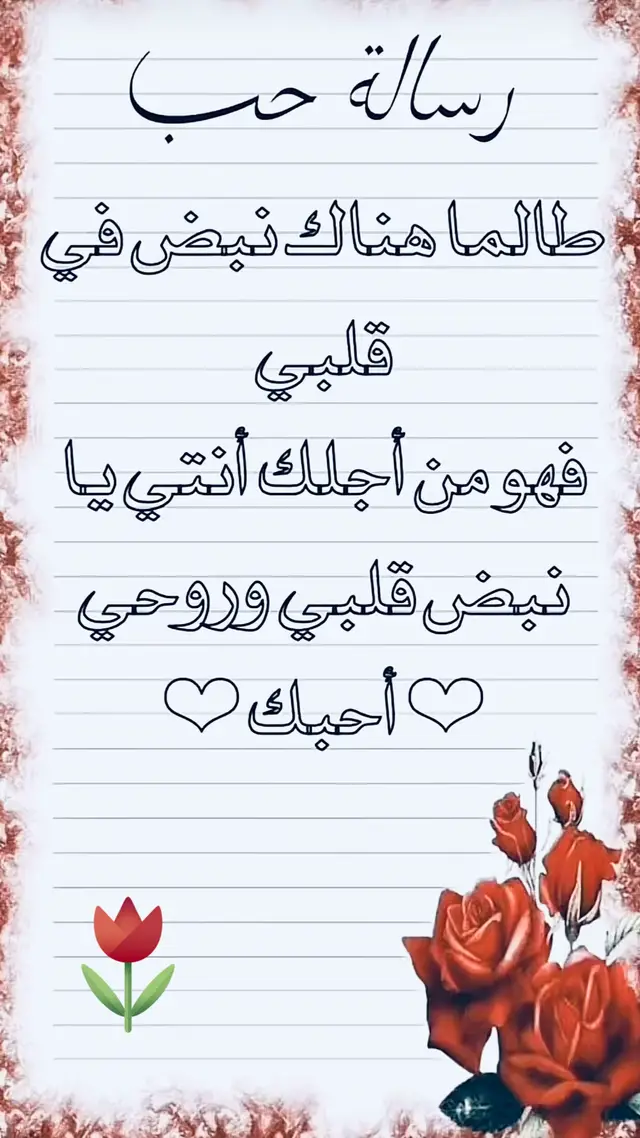 رسالة حب
طالما هناك نبض في
قلبي
فهو من أجلك أنتي يا
نبض قلبي وروحي
♡ أحبك ♡